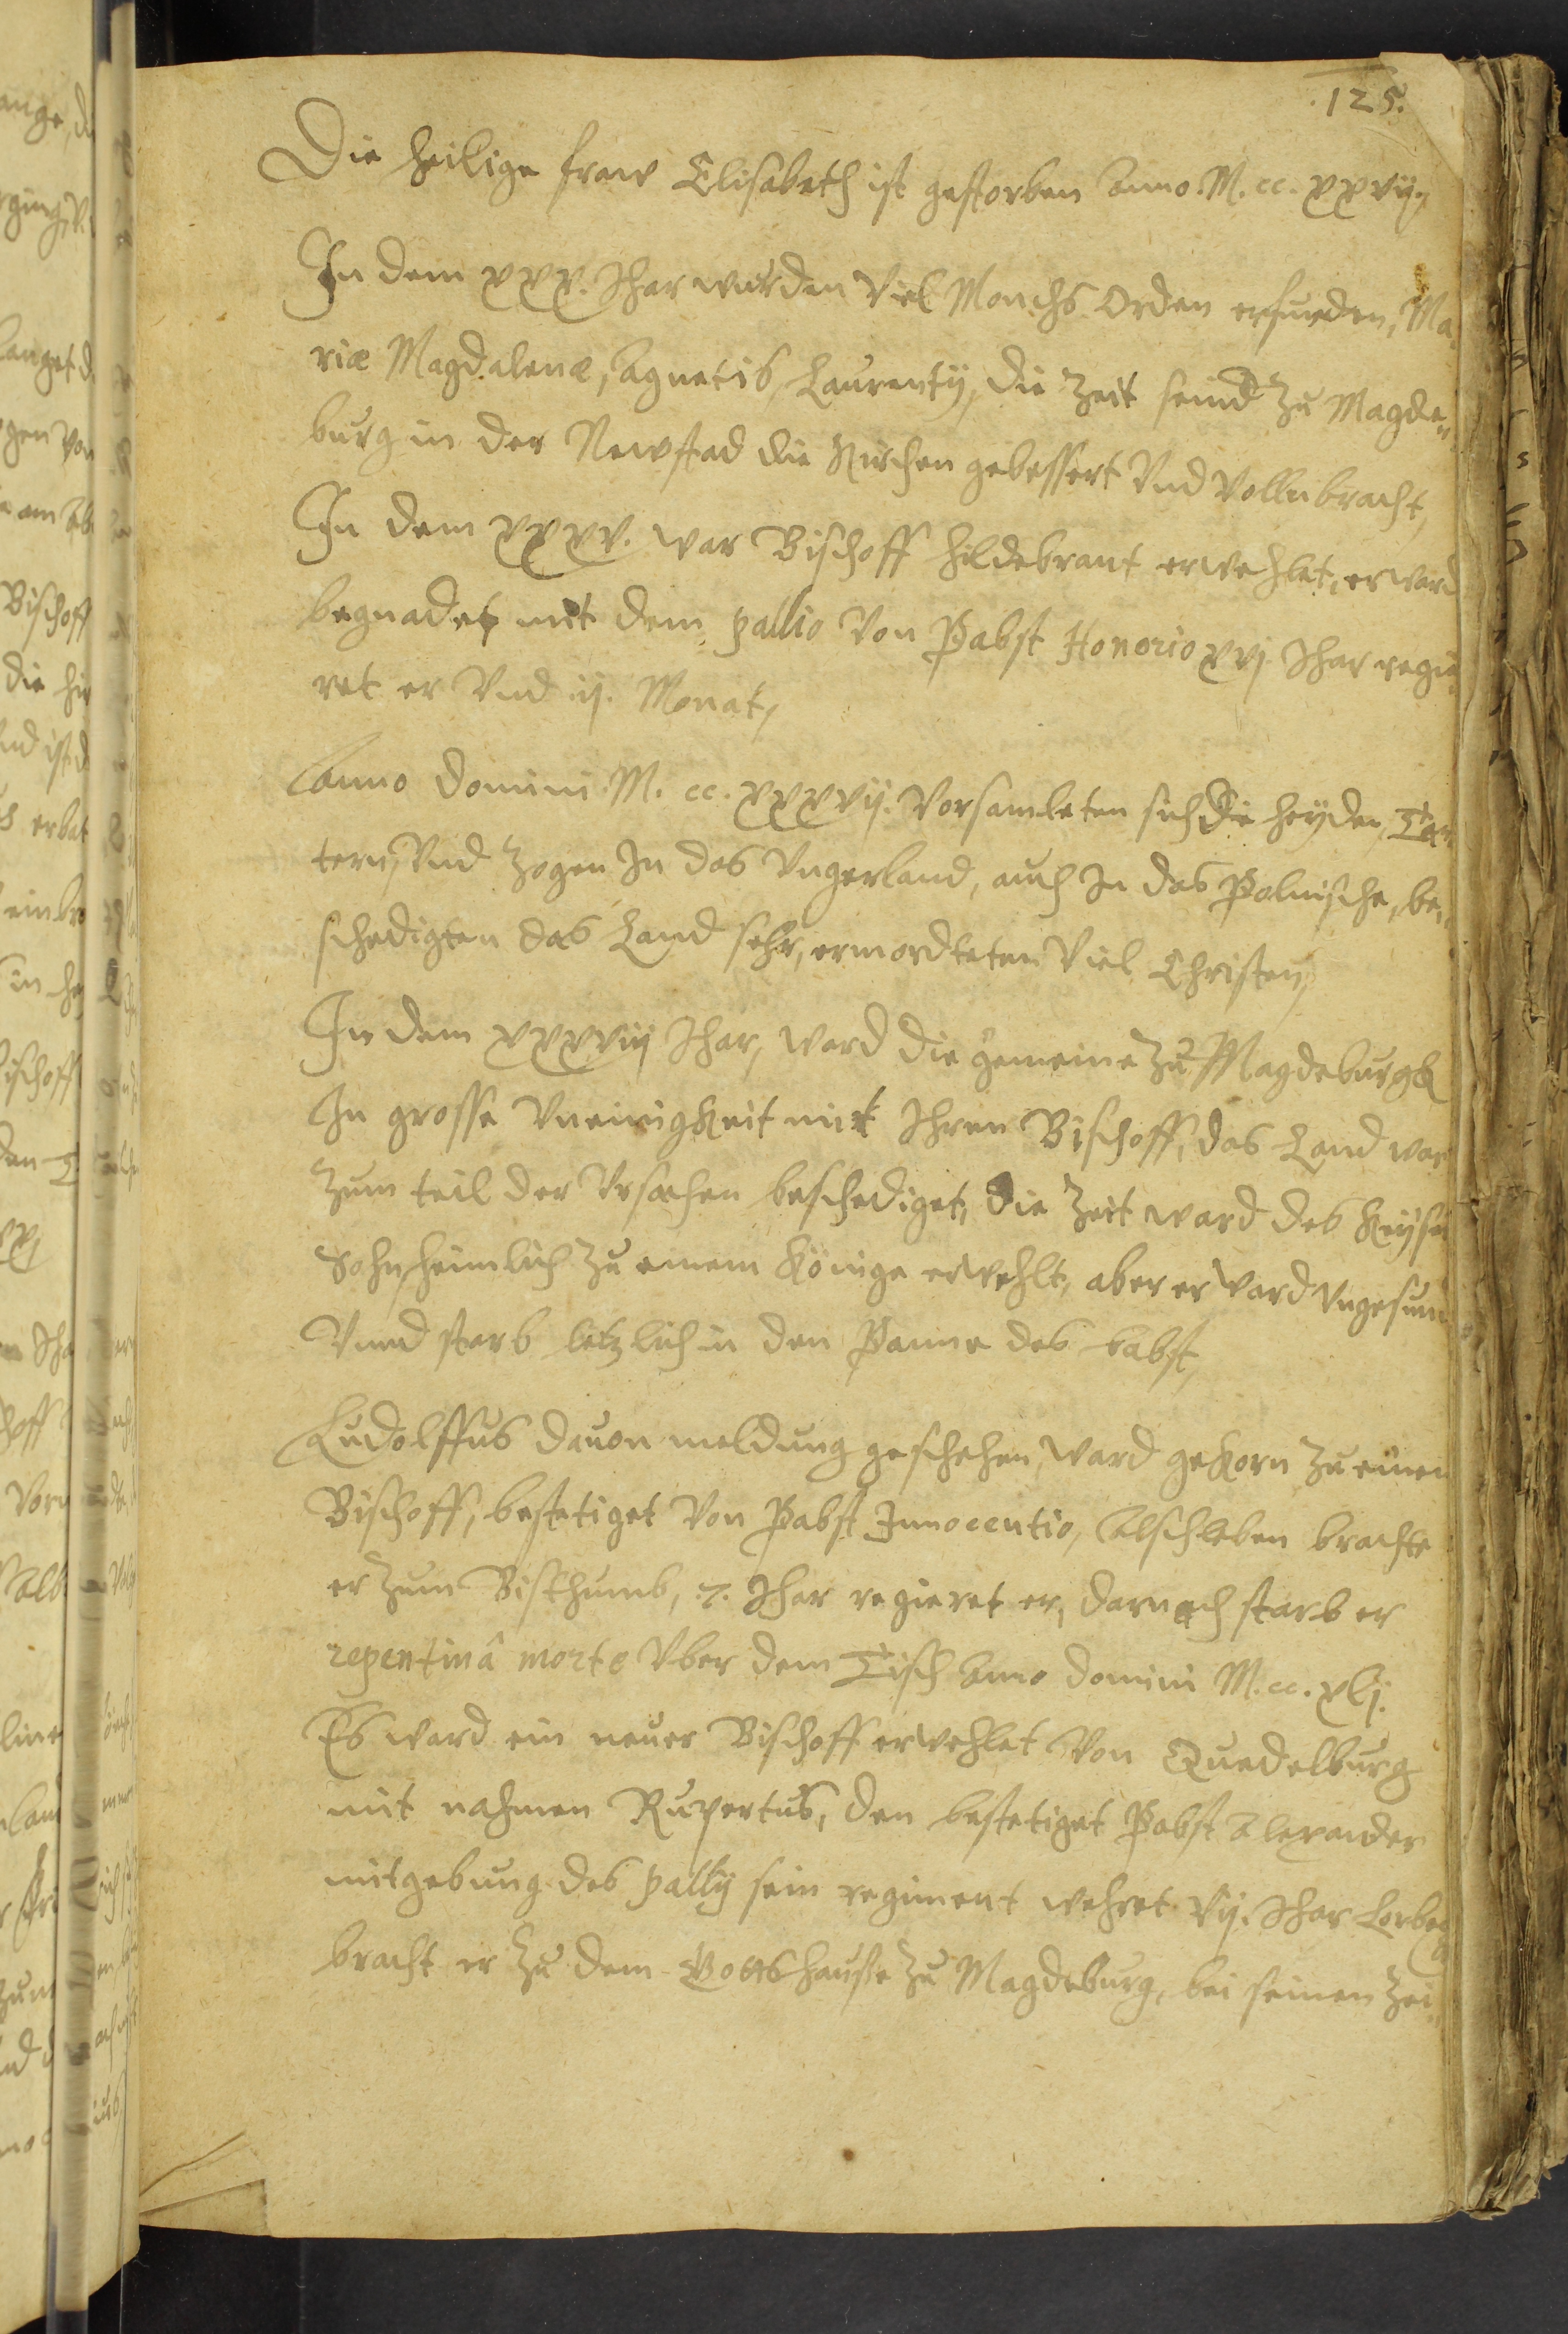 125.
Die heilige fraw Elisabeth ist gestorben Anno. M. cc. xxvij,
In dem xxx. Jhar wurden Viel Monchs Orden erfunden, Ma,
riæ Magdalenæ, Agnetis, Laurentij, die Zeit seind Zu Magde,,
burg in der Newstad die Kirchen gebessert Vnd Vollnbracht,
In dem xxxv. war Bischoff Hildebrant erwehlet, er ward
begnadet mit dem pallio Von Pabst Honorio xvj Jhar regie,
ret er Vnd ij. Monat,
Anno Domini M. cc. xxxvij. Vorsamleten sich die heyden, Tar
tern, Vnd Zogen In das Vngerland, auch In das Polnische, be,,
schedigten das Land sehr, ermordteten Viel Christen,
In dem xxxviij Jhar, ward die gemeine Zu Magdeburgk
In grosse Vneinigkeit mit Ihren Bischoff, das Land war
Zum teil der Vrsachen beschediget, die Zeit ward des Keyser
Sohn heimlich Zu einem Könige erwehlt, aber er ward Vngesun
Vnnd starb letzlich in den Panne des babst,
Ludolffus dauon meldung geschehen, ward gekorn Zu einen
Bischoff, bestetiget Von Pabst Innocentio, Alschleben brachte
er Zum Bisthumb, 7. Jhar regieret er, darnach starb er
repentinâ morte Vber dem Tisch Anno Domini M. cc. xlj.
Es ward ein neuer Bischoff erwehlet Von Quedelburg
mit nahmen Rupertus, den bestetiget Pabst Alexander
mitgebung des pallij sein regiment wehret Vij. Jhar Lorbeg
bracht er Zu dem Gottshauße Zu Magdeburg, bei seinen Zei,,